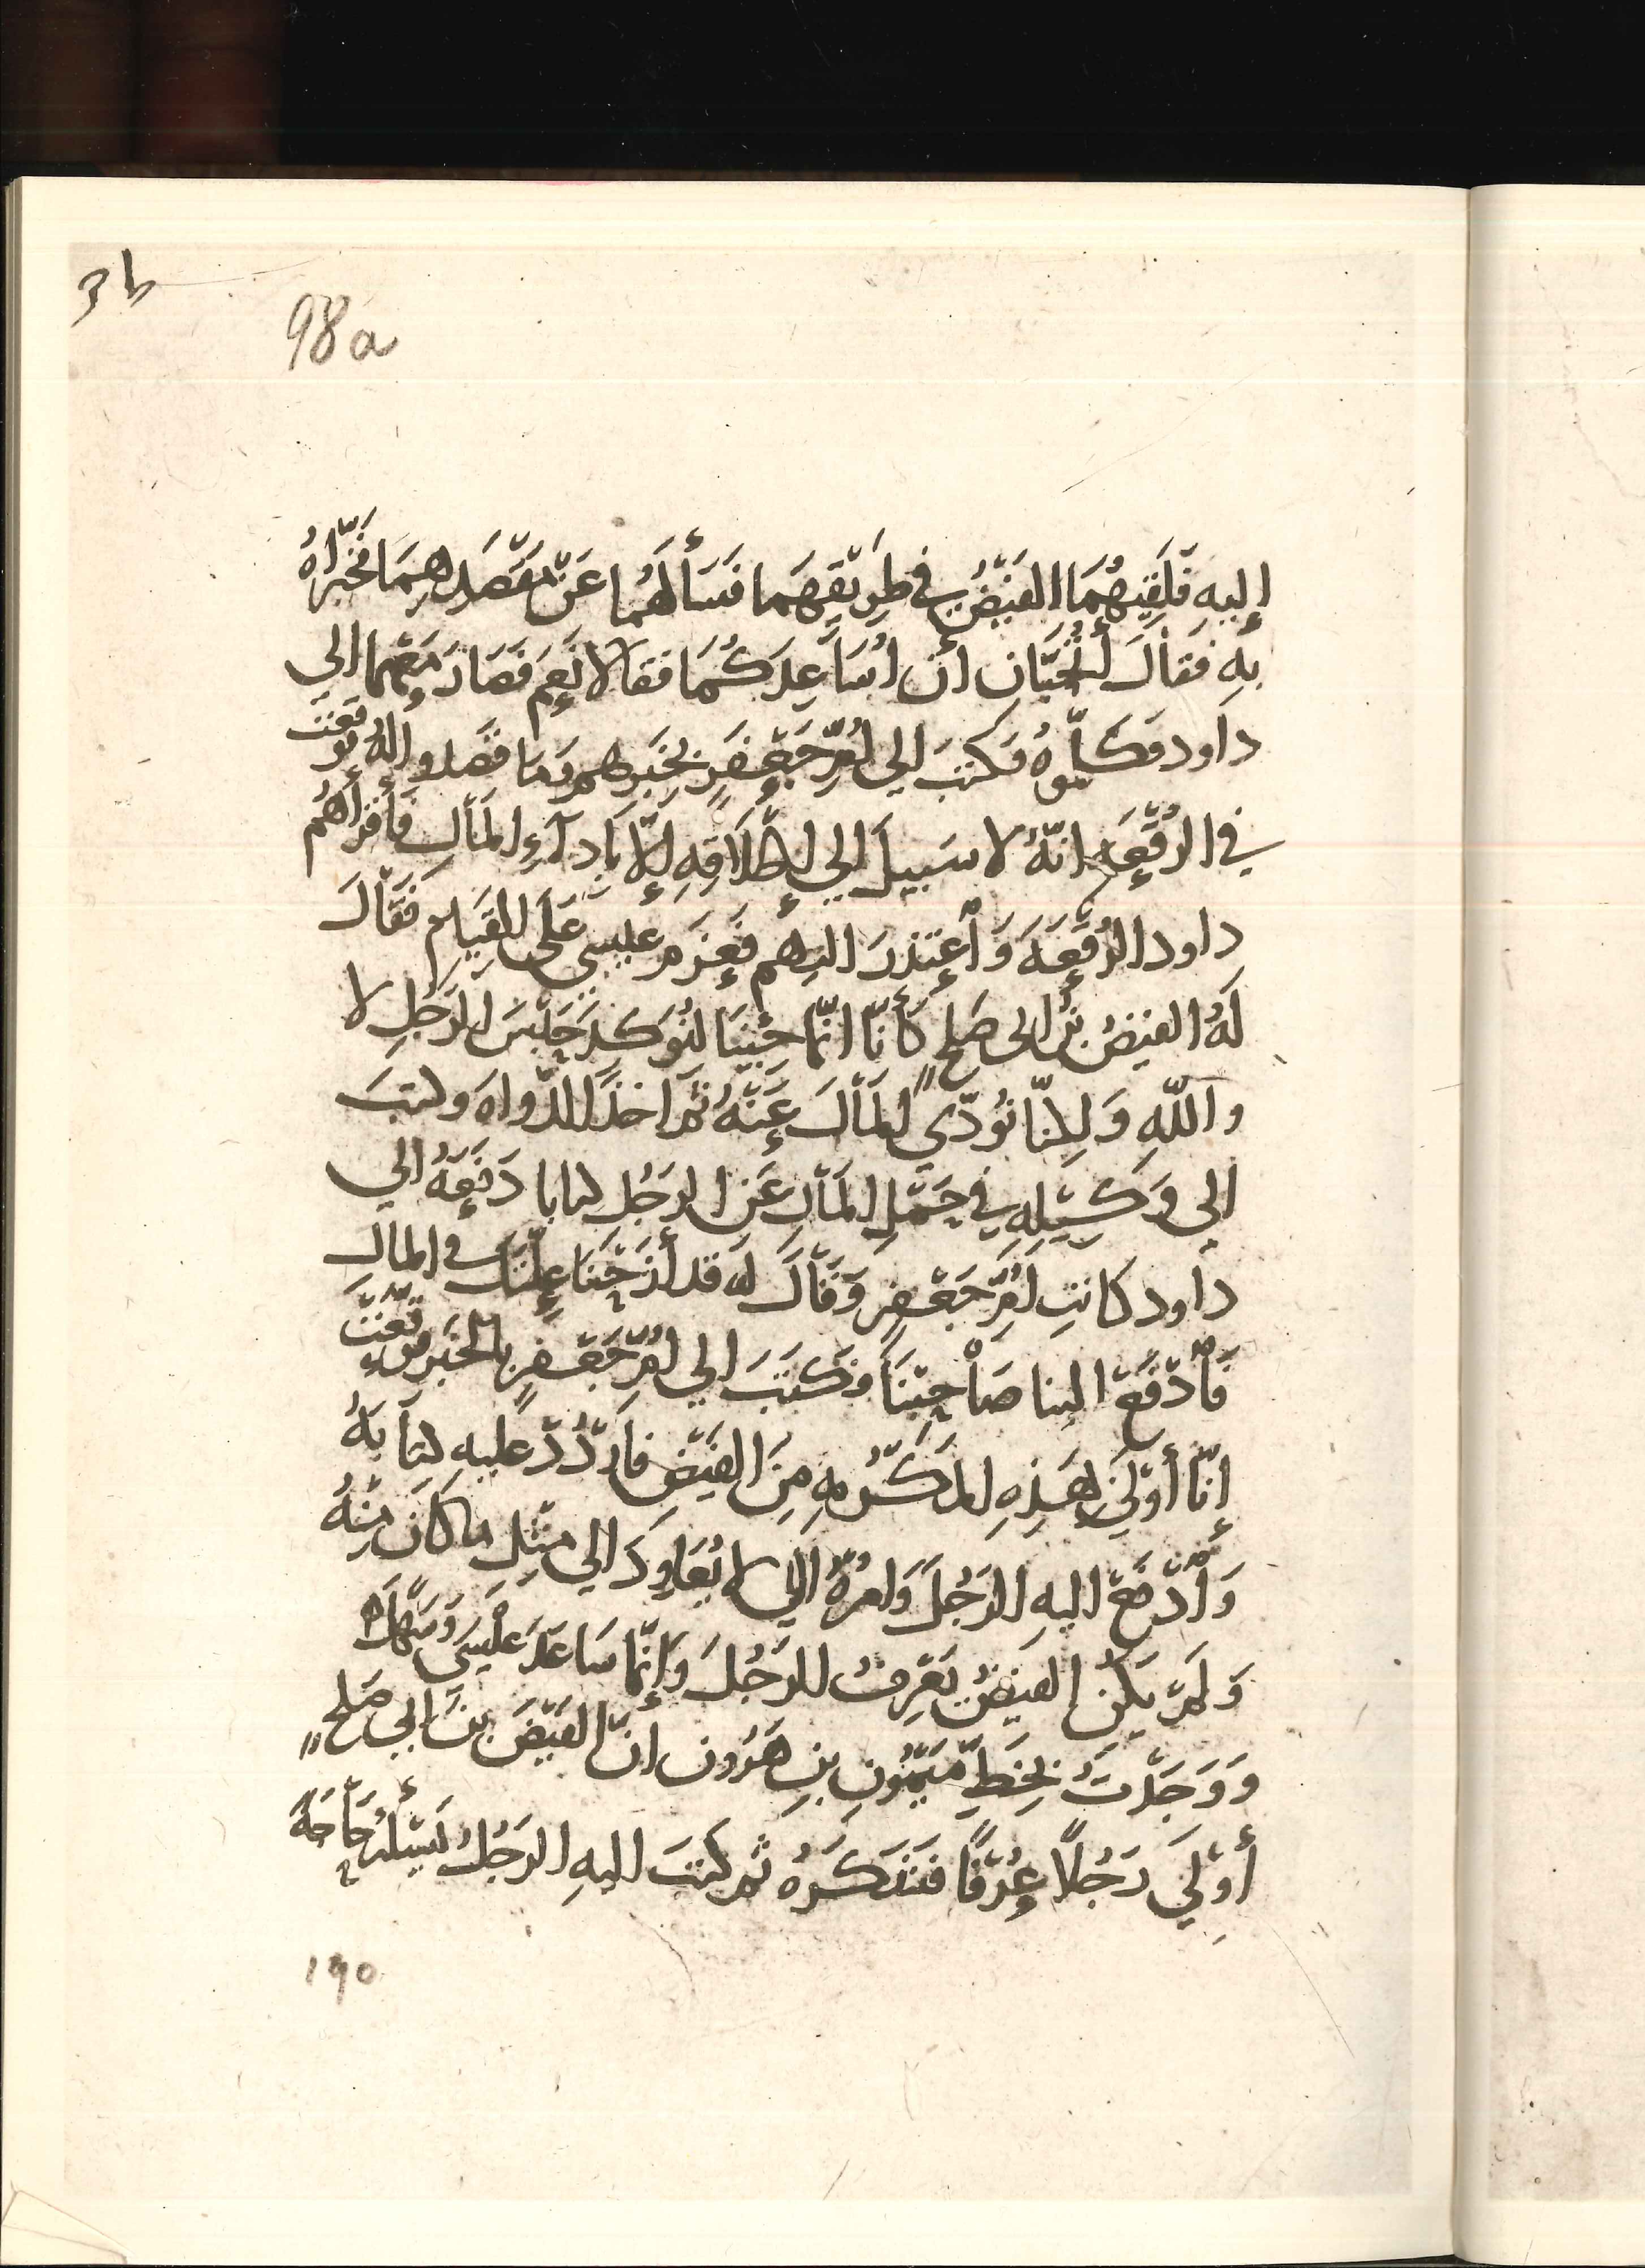 3b
98a
إليهِ فَلَقِيَهُمَا الفَيْضُ في طَرِيْقِهِمَا فَسَأَلَهُمَا عَنْ مَقْصَدِهِمَا فَخَبَّرَاهُ
بِهِ فَقَالَ أَتُحِبَّانِ أن اُسَاعِدَكُمَا فقالا نَعَم فَصَارَ مَعَهُما الى
داود فكلّموهُ فكتبَ الى اُمِّ جَعْفَرٍ بخَبَرِهم وَمَا قصَدُوا لهُ فوَقّعَتْ
في الرُقْعَه انّهُ لا سَبيلَ الي إطْلَاقِهِ إلّا بِأدآءِ المَالِ فَأقْرأهُم
داود الرُقْعَهَ وَأعْتذرَ اليهم فَعَزمَ عيسى عَلى القِيَامِ فَقَالَ
لَهُ الفيضُ بنُ ابى صَلحٍ كأنّا انّما جِئْنَا لنُوَكدَ حَبْسَ الرَجُلِ لا
واللهِ وَلكنّا نُؤدّي المَالَ عَنْهُ ثم اخذَ الدّواه وكتبَ
الى وَكيْلِهِ في حَمْلِ المَالِ عَنِ الرجُلِ كتابا دَفَعَهُ الي
داود كاتبِ اُمِّ جَعْفرٍ وَقَالَ له قد أزَحْنَا عِلّتَك في المال
فَأدْفَعْ الينا صَاحِبَنَا فكَتَبَ الي اُمِّ جَعْفرٍ بالخَبَرِ فوَقّعَتْ
إنّا أوْلَى بهَذِهِ المَكْرُمهِ مِنَ الفيْضِ فارْدُدْ عليه كتابَهُ
وَأدْفَعْ اليهِ الرَجُلَ وَامُرهُ الّا يُعَاوِدَ الي مِثْلِ ما كانَ مِنْهُ
وَلَمْ يَكُنِ الفيْضُ يَعْرِفُ للرَجُلَ وإنّما سَاعَدَ عيسَى وَسَهْلاً
وَوَجَدْتُ بخَطِّ مَيْمُونِ بنِ هَرُون انّ الفَيْضَ بنَ ابي صَلحٍ
أوْلَى رَجُلاً عُرْفًا فتنكَّرهُ ثم كتبَ اليهِ الرَجُلُ يَسْئلهُ حَاجَهً
١٩٥